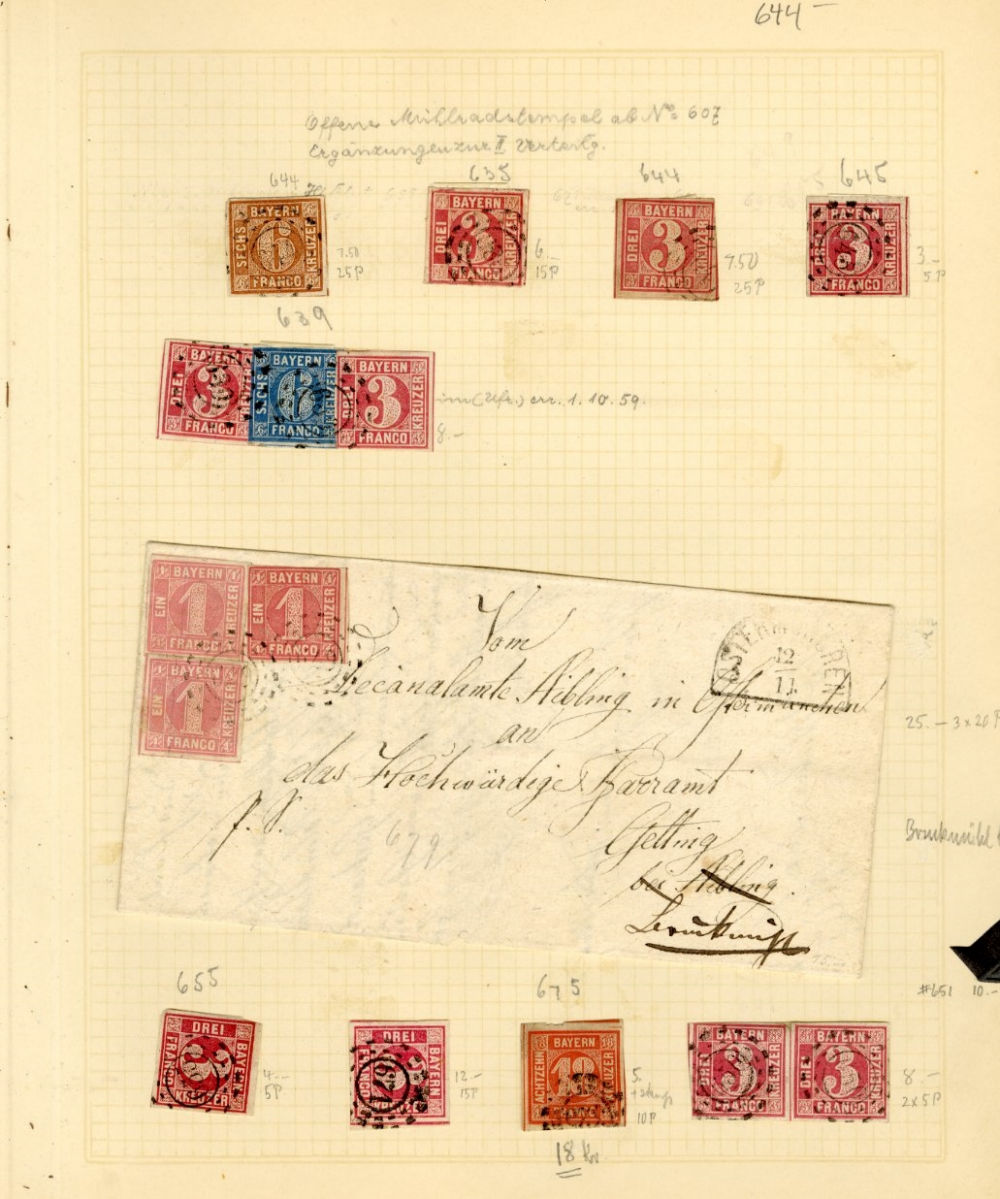 644 –
Offene Mühlradstempel ab No 607
Ergänzungen zur II Verteilg.
644 635 644 645
BAYERN
SECHS 6 KREUZER
FRANCO
7.50
25 P
BAYERN
DREI 3 KREUZER
FRANCO
6.–
15 P
BAYERN
DREI 3 KREUZER
FRANCO
7.50
25 P
BAYERN
DREI 3 KREUZER
FRANCO
3.–
5 P
639
BAYERN
DREI 3 KREUZER
FRANCO
BAYERN
SECHS 6 KREUZER
FRANCO
BAYERN
DREI 3 KREUZER
FRANCO
err. 1.10.59.
8.–
BAYERN
EIN 1 KREUZER
FRANCO
BAYERN
EIN 1 KREUZER
FRANCO
BAYERN
EIN 1 KREUZER
FRANCO
OSTERMÜNCHEN
12
11
Vom
Decanalamte Aibling in Ostermünchen
an
das Hochwürdige Pfarramt
Götting
bei Aibling.
P. S.
679
25.– 3 x 20 P
Bruckmühl
#651 10.–
655 675
DREI
FRANCO 3 BAYERN
KREUZER
4.–
5 P
DREI
FRANCO 3 BAYERN
KREUZER
671
12.–
15 P
BAYERN
ACHTZEHN 18 KREUZER
FRANCO
5.
10 P
18 Kr
BAYERN
DREI 3 KREUZER
FRANCO
BAYERN
DREI 3 KREUZER
FRANCO
8.–
2 x 5 P